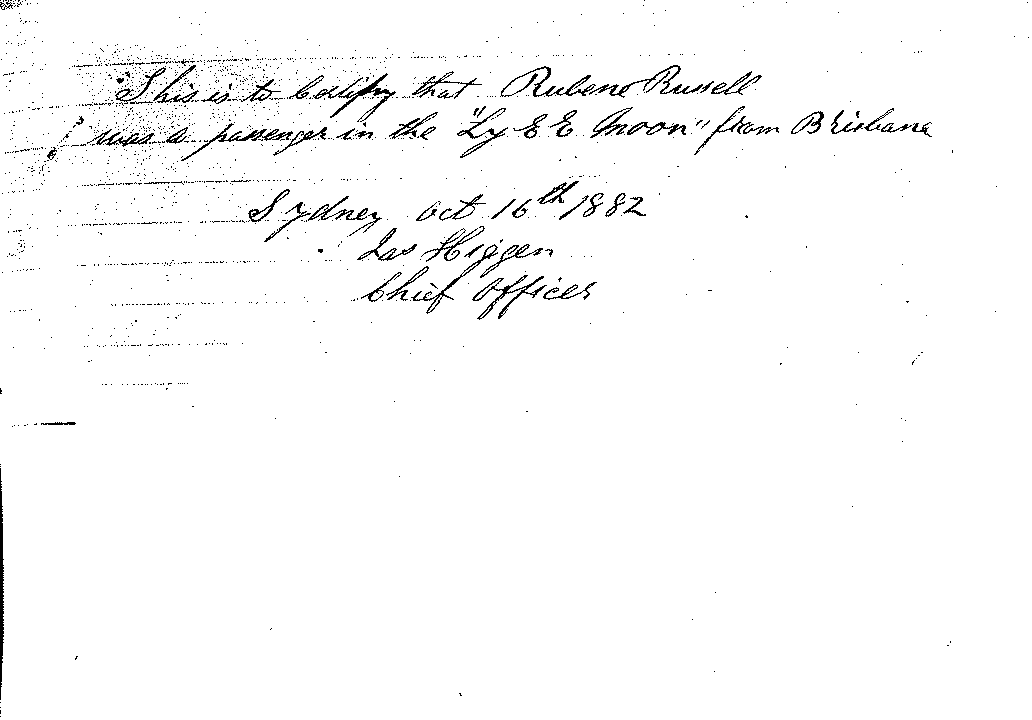 "This is to Certify that Rubene Russell
was a passenger in the "Ly E E Moon" from Brisbane
Sydney Oct 16th 1882
Jas Higgen
Chief Officer